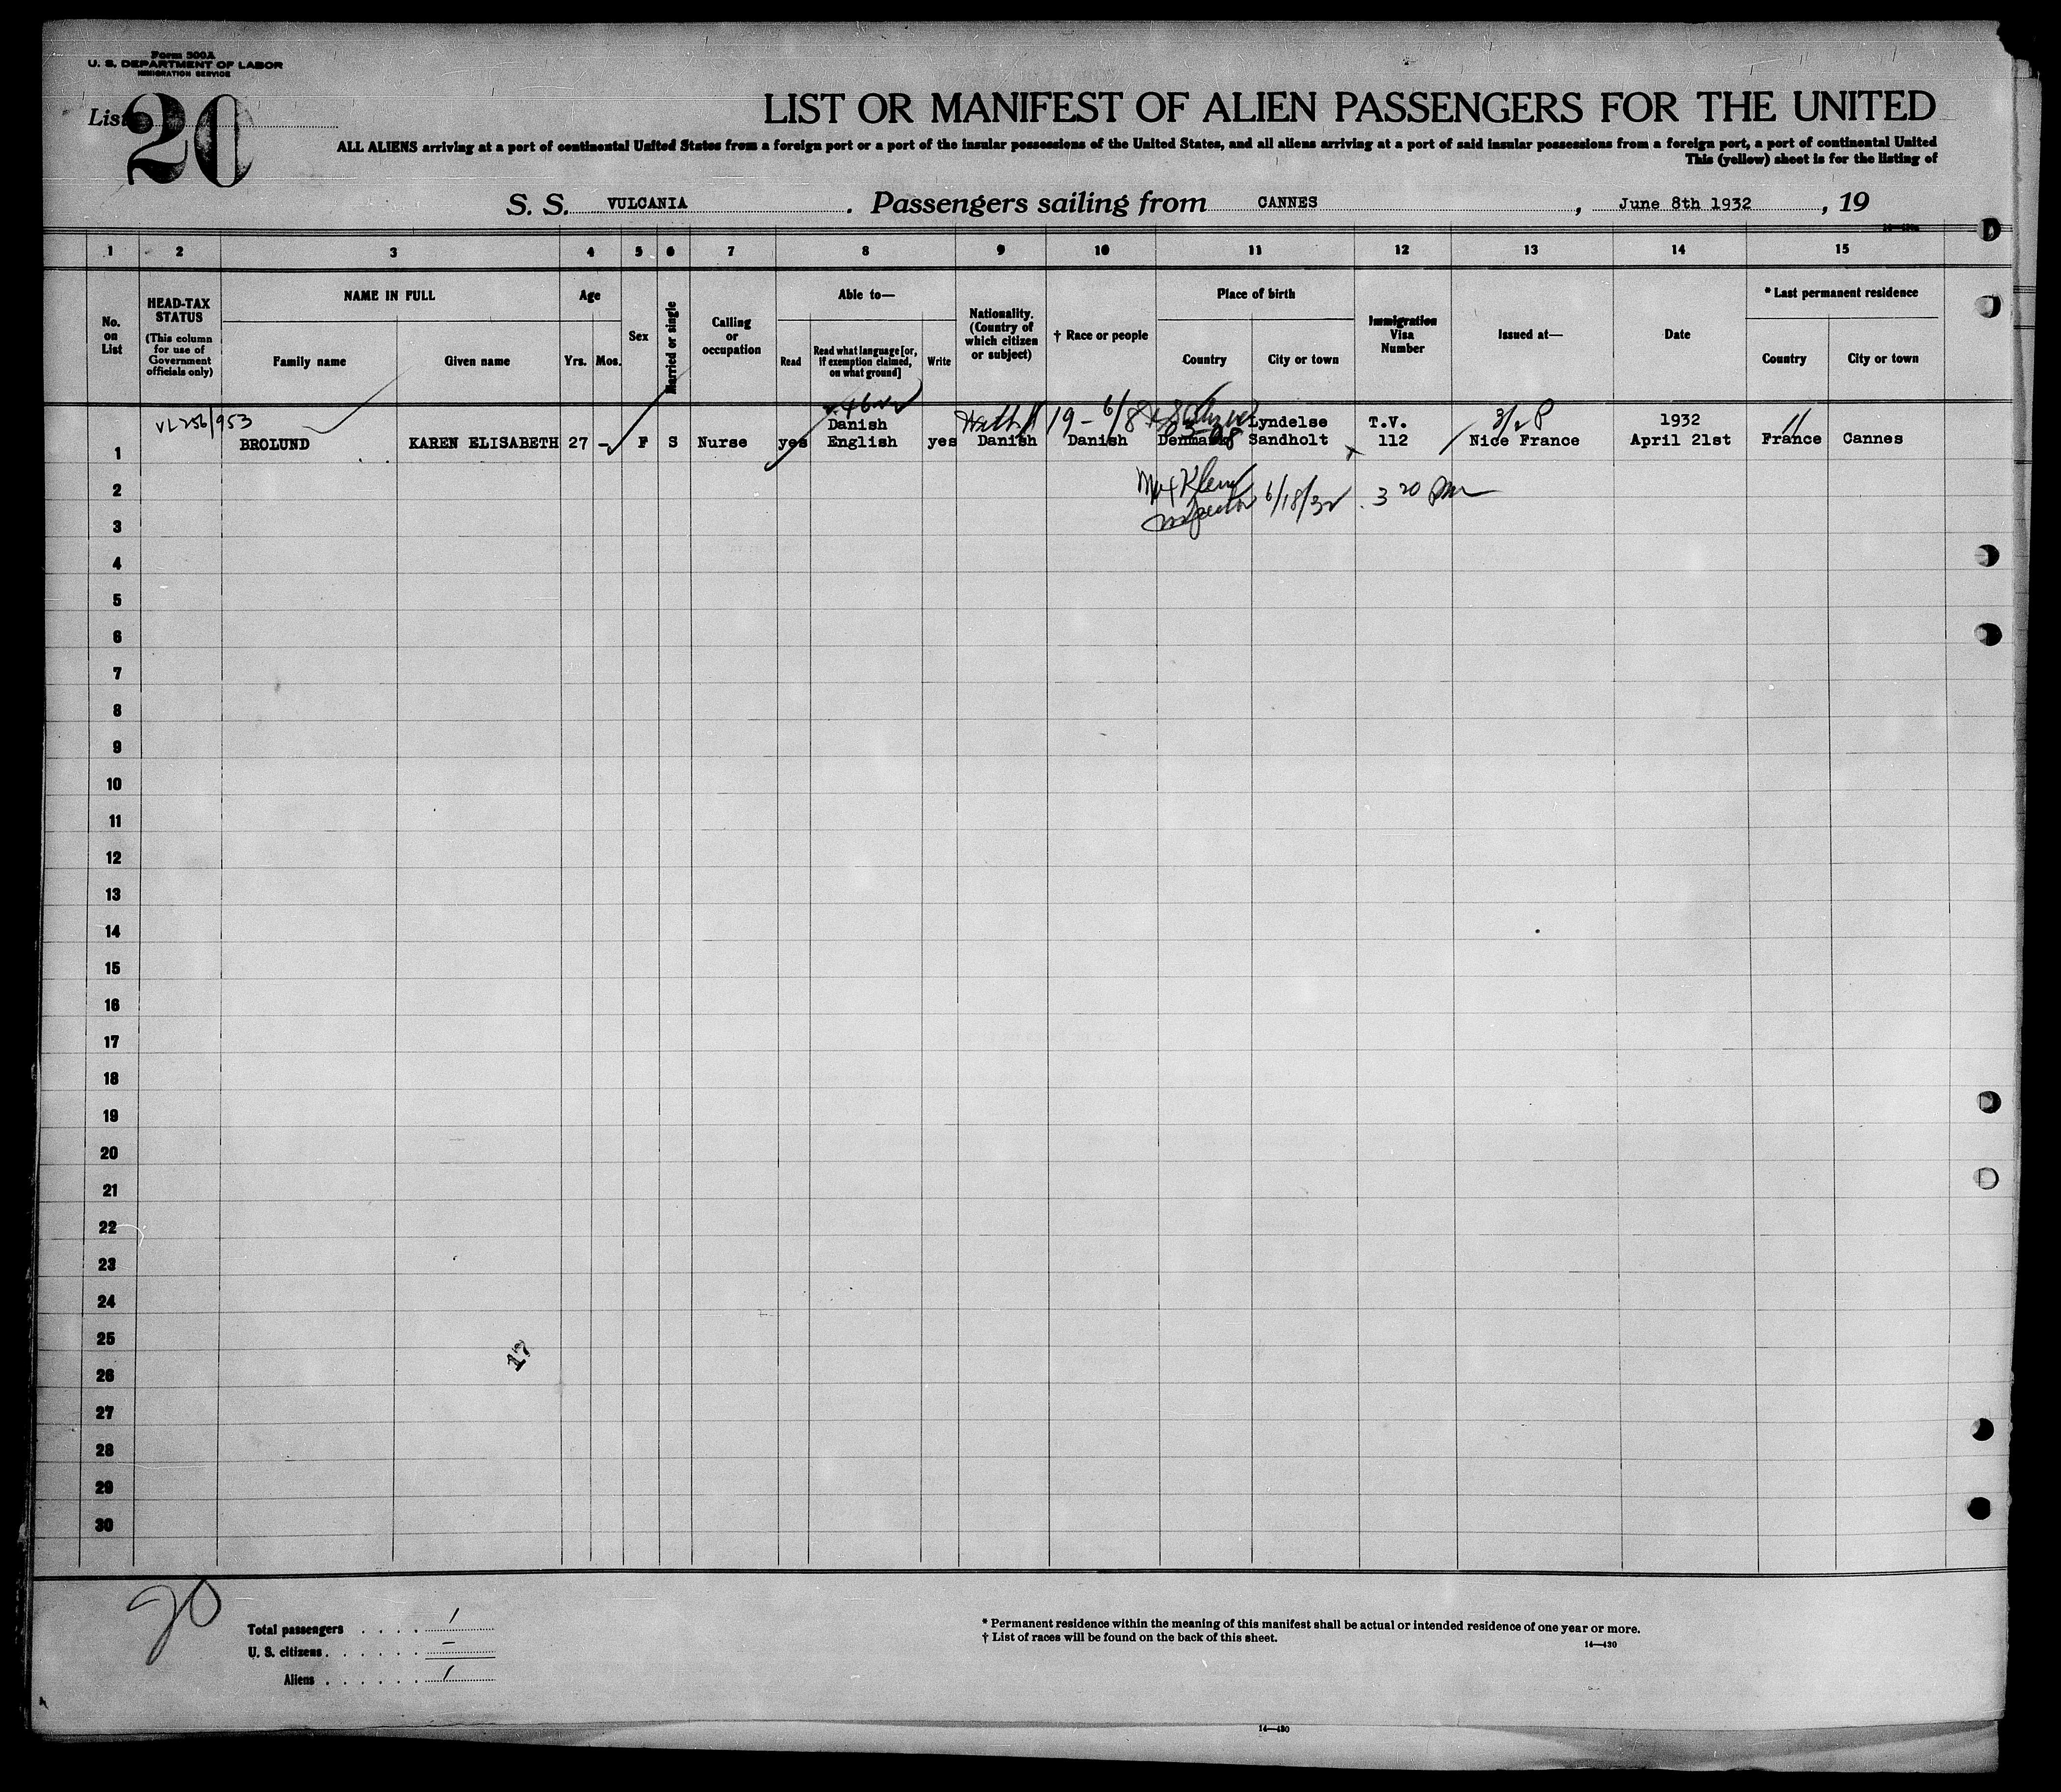 Form 500A
U. S. DEPARTMENT OF LABOR
IMMIGRATION SERVICE
List 20
LIST OR MANIFEST OF ALIEN PASSENGERS FOR THE UNITED
ALL ALIENS arriving at a port of continental United States from a foreign port or a port of the insular possessions of the United States, and all aliens arriving at a port of said insular possessions from a foreign port, a port of continental United
This (yellow) sheet is for the listing of
S. S. VULCANIA . Passengers sailing from CANNES , June 8th 1932 , 19
1 2 3 4 5 6 7 8 9 10 11 12 13 14 15
No. on List
HEAD-TAX STATUS
(This column for use of Government officials only)
NAME IN FULL
Family name
Given name
Age
Yrs. Mos.
Sex
Married or single
Calling or occupation
Able to—
Read
Read what language [or, if exemption claimed, on what ground]
Write
Nationality. (Country of which citizen or subject)
† Race or people
Place of birth
Country
City or town
Immigration Visa Number
Issued at—
Date
* Last permanent residence
Country
City or town
953
Danish Lyndelse T.V. 1932
1 BROLUND KAREN ELISABETH 27 - F S Nurse yes English yes Danish Danish Denmark Sandholt 112 Nice France April 21st France Cannes
2 Max Klein 6/18/32 3 20 pm
3 Inspector
4
5
6
7
8
9
10
11
12
13
14
15
16
17
18
19
20
21
22
23
24
25
17
26
27
28
29
30
20
Total passengers . . . . 1
U. S. citizens . . . . . . —
Aliens . . . . . . 1
* Permanent residence within the meaning of this manifest shall be actual or intended residence of one year or more.
† List of races will be found on the back of this sheet.
14—430
14—430